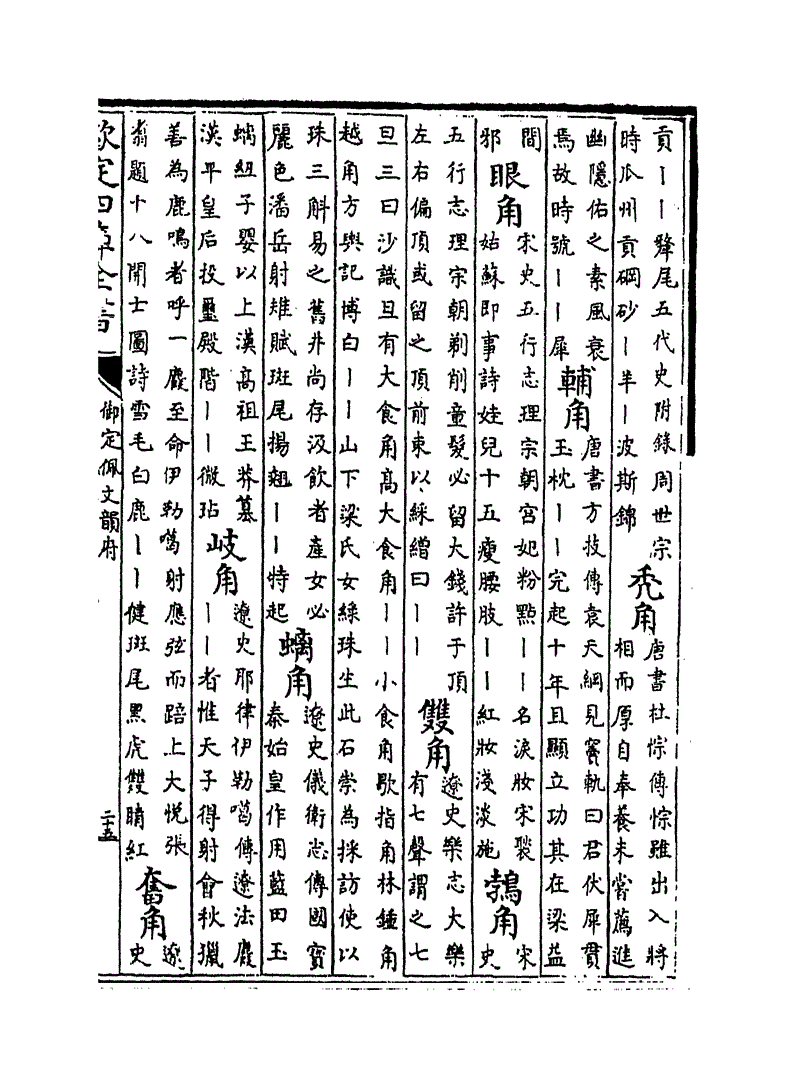 貢丨丨犛尾五代史附錄周世宗
時瓜州貢硐砂丨羊丨波斯錦
禿角
唐書杜悰傳悰雖出入將
相而厚自奉養未嘗薦進
幽隱佑之素風衰
焉故時號丨丨犀
輔角
唐書方技傳袁天綱見竇軌曰君伏犀貫
玉枕丨丨完起十年且顯立功其在梁益
間
邪
眼角
宋史五行志理宗朝宮妃粉點丨丨名淚妝宋褧
姑蘇即事詩娃兒十五瘦腰肢丨丨紅妝淺淡施
鵓角
宋
史
五行志理宗朝剃削童髮必留大錢許于頂
左右偏頂或留之頂前束以綵繒曰丨丨
雙角
遼史樂志大樂
有七聲謂之七
旦三曰沙識旦有大食角高大食角丨丨小食角歇指角林鍾角
越角方輿記博白丨丨山下梁氏女綠珠生此石崇為採訪使以
珠三斛易之舊井尚存汲飲者産女必
麗色潘岳射雉賦斑尾揚翹丨丨特起
螭角
遼史儀衛志傳國寶
秦始皇作用藍田玉
螭紐子嬰以上漢高祖王莽簒
漢平皇后投璽殿階丨丨微玷
岐角
遼史耶律伊勒噶傳遼法麚
丨丨者惟天子得射會秋獵
善為鹿鳴者呼一麚至命伊勒噶射應弦而踣上大悦張
翥題十八開士圖詩雪毛白鹿丨丨健斑尾黒虎雙睛紅
奮角
遼
史
欽定四庫全書
御定佩文韻府
二十五